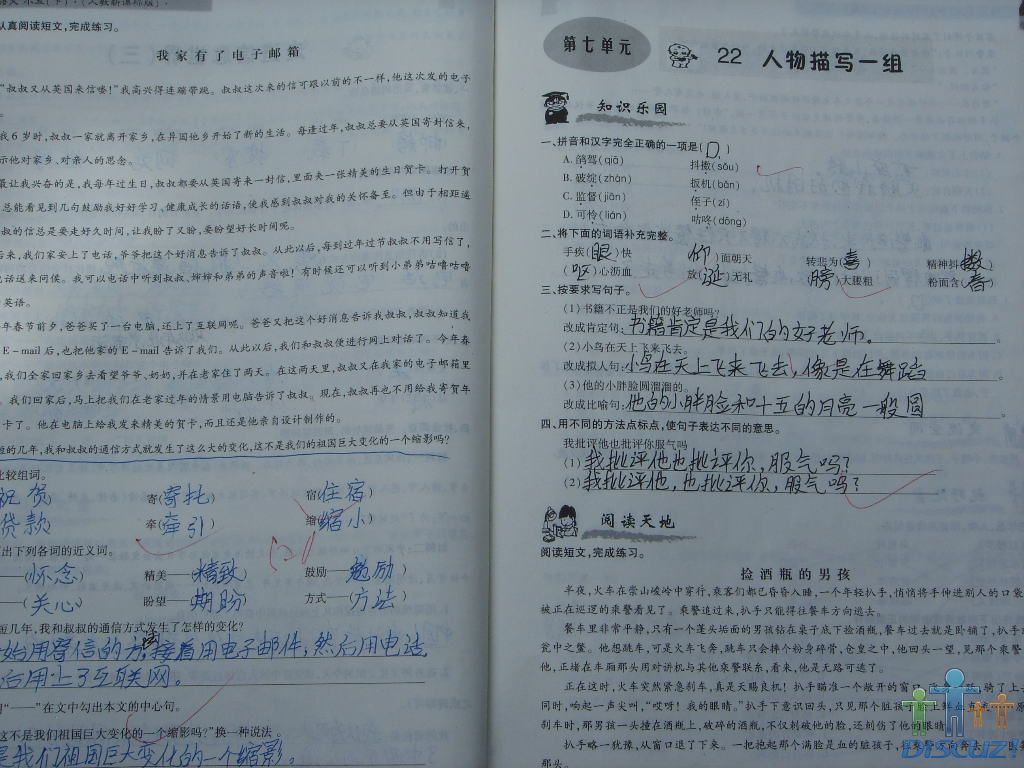 认真阅读短文,完成练习。
我家有了电子邮箱
“叔叔又从英国来信喽!”我高兴得连蹦带跳。叔叔这次来的信可跟以前的不一样,他这次发的电子
我6岁时,叔叔一家就离开家乡,在异国他乡开始了新的生活。每逢过年,叔叔总要从英国寄封信来,
示他对家乡、对亲人的思念。
最让我兴奋的是,我每年过生日,叔叔都要从英国寄来一封信,里面夹一张精美的生日贺卡。打开贺
总能看见到几句鼓励我好好学习、健康成长的话语,使我感到叔叔对我的关怀备至。但由于相距遥
叔的信总是要走好久时间,让我盼了又盼,要盼望好长时间呢。
后来,我们家安上了电话,爷爷把这个好消息告诉了叔叔。从此以后,每到过年过节叔叔不用写信了,
电话送来问候。我可以电话中听到叔叔、婶婶和弟弟的声音啦!有时候还可以听到小弟弟咕噜咕噜
英语。
年春节前夕,爸爸买了一台电脑,还上了互联网呢。爸爸又把这个好消息告诉我叔叔,叔叔知道我
E-mail后,也把他家的E-mail告诉了我们。从此以后,我们和叔叔便进行网上对话了。今年春
我们全家回家乡去看望爷爷、奶奶,并在老家住了两天。在这两天里,叔叔又在我家的电子邮箱里
。我们回家后,马上把我们在老家过年的情景用电脑告诉了叔叔。现在,叔叔再也不用给我寄贺年
卡了。他在电脑上给我发来精美的贺卡,而且还是他亲自设计制作的。
短的几年,我和叔叔的通信方式就发生了这么大的变化,这不是我们的祖国巨大变化的一个缩影吗?
比较组词。
祝贺 寄(寄托) 宿(住宿)
贷款 牵(牵引) 缩(缩小)
出下列各词的近义词。
——(怀念) 精美——(精致) 鼓励——(勉励)
——(关心) 盼望——(期盼) 方式——(方法)
短几年,我和叔叔的通信方式发生了怎样的变化?
始用登信的方 接着用电子邮件,然后用电话
后用上了互联网。
用“——”在文中勾出本文的中心句。
这不是我们祖国巨大变化的一个缩影吗?”换一种说法。
是我们祖国巨大变化的一个缩影。
第七单元
22 人物描写一组
知识乐园
一、拼音和汉字完全正确的一项是( D )
A. 鸽驾(qiā) 抖擞(sǒu)
B. 破绽(zhàn) 扳机(bān)
C. 监督(jiān) 侄子(zí)
D. 可怜(lián) 咕咚(dōng)
二、将下面的词语补充完整。
手疾(眼)快 (仰)面朝天 转悲为(喜) 精神抖(擞)
(呕)心沥血 放(诞)无礼 (膀)大腰粗 粉面含(春)
三、按要求写句子。
(1)书籍不正是我们的好老师吗?
改成肯定句:书籍肯定是我们的好老师。
(2)小鸟在天上飞来飞去。
改成拟人句:小鸟在天上飞来飞去,像是在舞蹈。
(3)他的小胖脸圆溜溜的。
改成比喻句:他的小胖脸和十五的月亮一般圆。
四、用不同的方法点标点,使句子表达不同的意思。
我批评他也批评你服气吗
(1)我批评他也批评你,服气吗?
(2)我批评他,也批评你,服气吗?
阅读天地
阅读短文,完成练习。
捡酒瓶的男孩
半夜,火车在崇山峻岭中穿行,旅客们都已昏昏入睡,一个年轻扒手,悄悄将手伸进别人的口袋
被正在巡逻的乘警看见了。乘警追过来,扒手只能得往餐车方向逃去。
餐车里非常平静,只有一个蓬头垢面的男孩钻在桌子底下捡酒瓶,餐车过去就是卧铺了,扒手
瓮中之鳖。他想跳车,可是火车飞奔,跳车只会摔个粉身碎骨,仓皇之中,他回头一望,见那个乘警
他,正堵在车厢那头用对讲机与其他乘警联系,看来,他是无路可逃了。
正在这时,火车突然紧急刹车,真是天赐良机!扒手瞄准一个敞开的窗口
同时,响起一声尖叫,“哎呀!我的眼睛。”扒手下意识回头,只见那个脏孩子脸上鲜血直流
刹车时,那男孩一头撞在酒瓶上,破碎的酒瓶,不仅刺破他的脸,还刺伤了他的眼睛
扒手略一犹豫,从窗口退了下来。一把抱起那个满脸是血的脏孩子,往乘警方向奔去
那头。
Discuz!